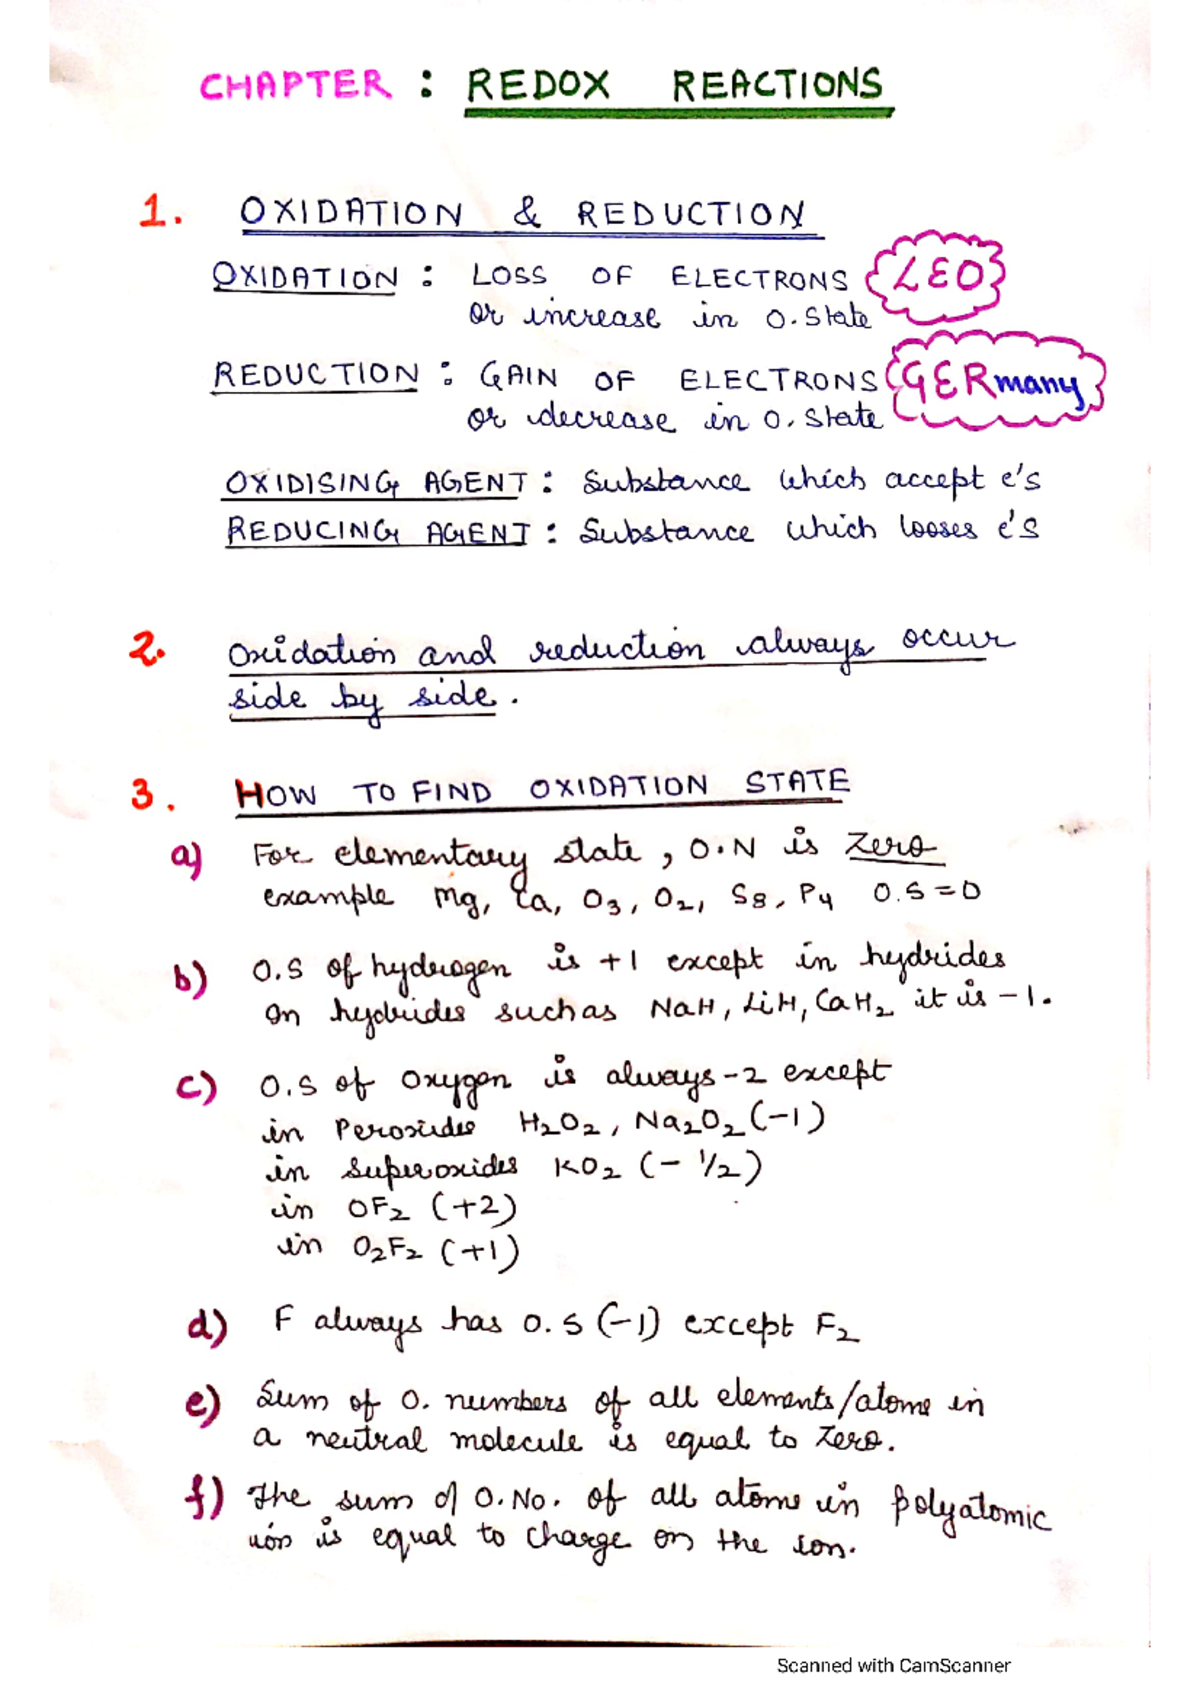 CHAPTER : REDOX REACTIONS
1. OXIDATION & REDUCTION
OXIDATION : LOSS OF ELECTRONS LEO
or increase in O. State
REDUCTION : GAIN OF ELECTRONS GERmany
or decrease in O. State
OXIDISING AGENT : Substance which accept e's
REDUCING AGENT : Substance which looses e's
2. Oxidation and reduction always occur
side by side.
3. HOW TO FIND OXIDATION STATE
a) For elementary state, O.N is Zero
example Mg, Ca, O3, O2, S8, P4 O.S = 0
b) O.S of hydrogen is +1 except in hydrides
In hydrides such as NaH, LiH, CaH2 it is -1.
c) O.S of Oxygen is always -2 except
in Peroxides H2O2, Na2O2 (-1)
in Superoxides KO2 (- 1/2)
in OF2 (+2)
in O2F2 (+1)
d) F always has O.S (-1) except F2
e) Sum of O. numbers of all elements/atoms in
a neutral molecule is equal to Zero.
f) The sum of O.No. of all atoms in polyatomic
ion is equal to charge on the ion.
Scanned with CamScanner